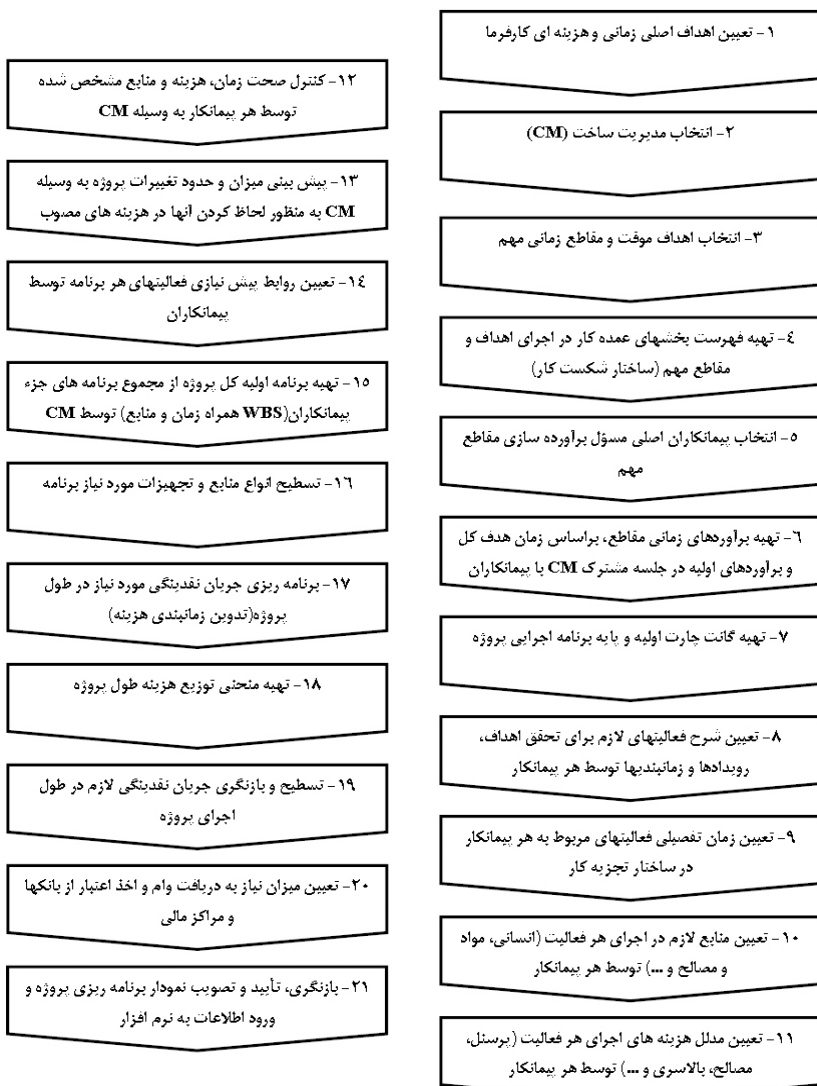 ۱- تعیین اهداف اصلی زمانی و هزینه ای کارفرما
۲- انتخاب مدیریت ساخت (CM)
۳- انتخاب اهداف موقت و مقاطع زمانی مهم
٤- تهیه فهرست بخشهای عمده کار در اجرای اهداف و
مقاطع مهم (ساختار شکست کار)
۵- انتخاب پیمانکاران اصلی مسؤل برآورده سازی مقاطع
مهم
٦- تهیه برآوردهای زمانی مقاطع، براساس زمان هدف کل
و برآوردهای اولیه در جلسه مشترک CM با پیمانکاران
۷- تهیه گانت چارت اولیه و پایه برنامه اجرایی پروژه
۸- تعیین شرح فعالیتهای لازم برای تحقق اهداف،
رویدادها و زمانبندیها توسط هر پیمانکار
۹- تعیین زمان تفصیلی فعالیتهای مربوط به هر پیمانکار
در ساختار تجزیه کار
۱۰- تعیین منابع لازم در اجرای هر فعالیت (انسانی، مواد
و مصالح و ...) توسط هر پیمانکار
۱۱- تعیین مدلل هزینه های اجرای هر فعالیت (پرسنل،
مصالح، بالاسری و ...) توسط هر پیمانکار
۱۲- کنترل صحت زمان، هزینه و منابع مشخص شده
توسط هر پیمانکار به وسیله CM
۱۳- پیش بینی میزان و حدود تغییرات پروژه به وسیله
CM به منظور لحاظ کردن آنها در هزینه های مصوب
۱٤- تعیین روابط پیش نیازی فعالیتهای هر برنامه توسط
پیمانکاران
۱۵- تهیه برنامه اولیه کل پروژه از مجموع برنامه های جزء
پیمانکاران(WBS همراه زمان و منابع) توسط CM
۱٦- تسطیح انواع منابع و تجهیزات مورد نیاز برنامه
۱۷- برنامه ریزی جریان نقدینگی مورد نیاز در طول
پروژه(تدوین زمانبندی هزینه)
۱۸- تهیه منحنی توزیع هزینه طول پروژه
۱۹- تسطیح و بازنگری جریان نقدینگی لازم در طول
اجرای پروژه
۲۰- تعیین میزان نیاز به دریافت وام و اخذ اعتبار از بانکها
و مراکز مالی
۲۱- بازنگری، تأیید و تصویب نمودار برنامه ریزی پروژه و
ورود اطلاعات به نرم افزار